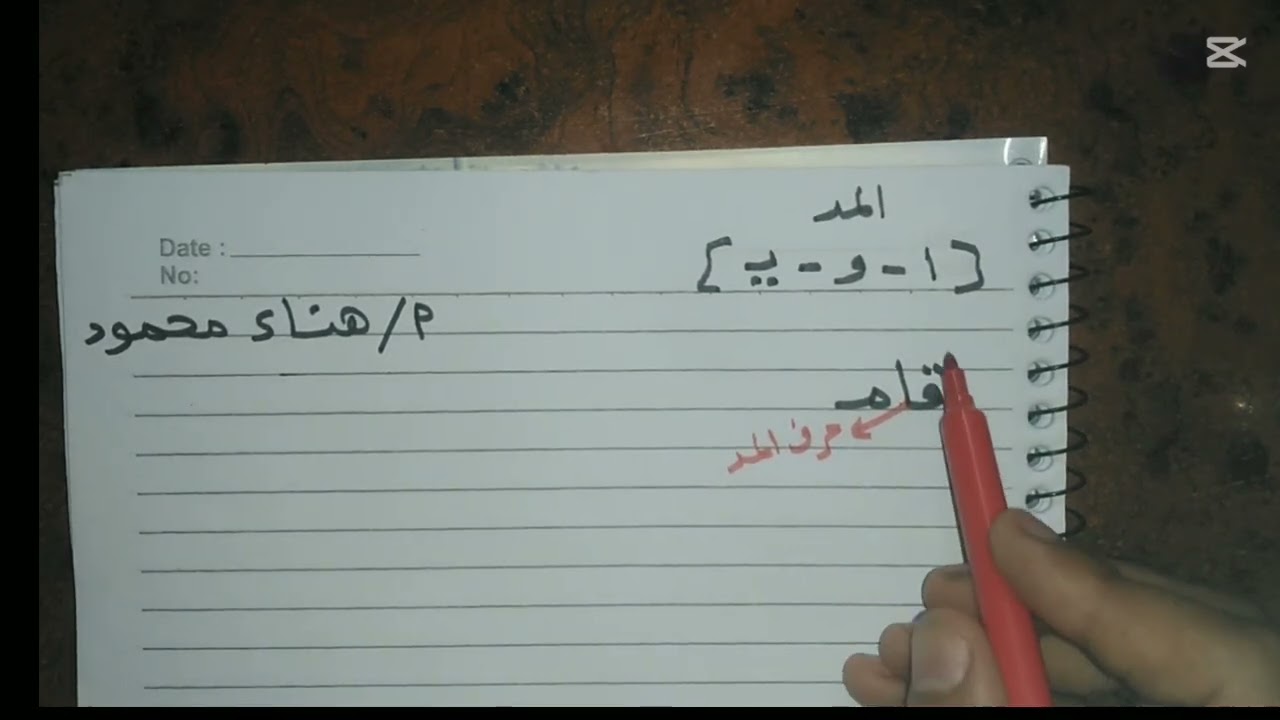 المد
[ا - و - يـ]
Date :
No:
م/ هناء محمود
قام
حرف المد